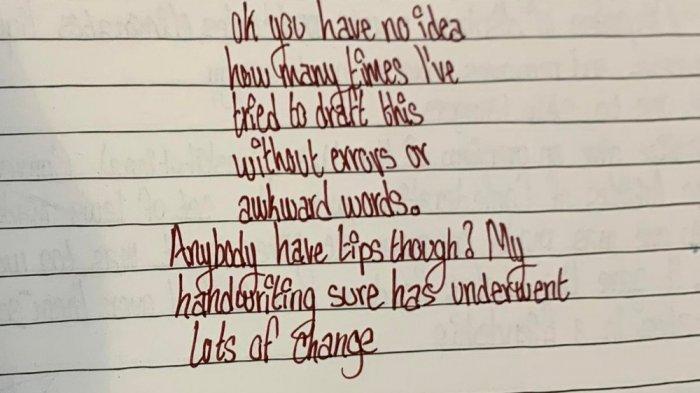 ok you have no idea
how many times I've
tried to draft this
without errors or
awkward words.
Anybody have tips though? My
handwriting sure has underwent
lots of change